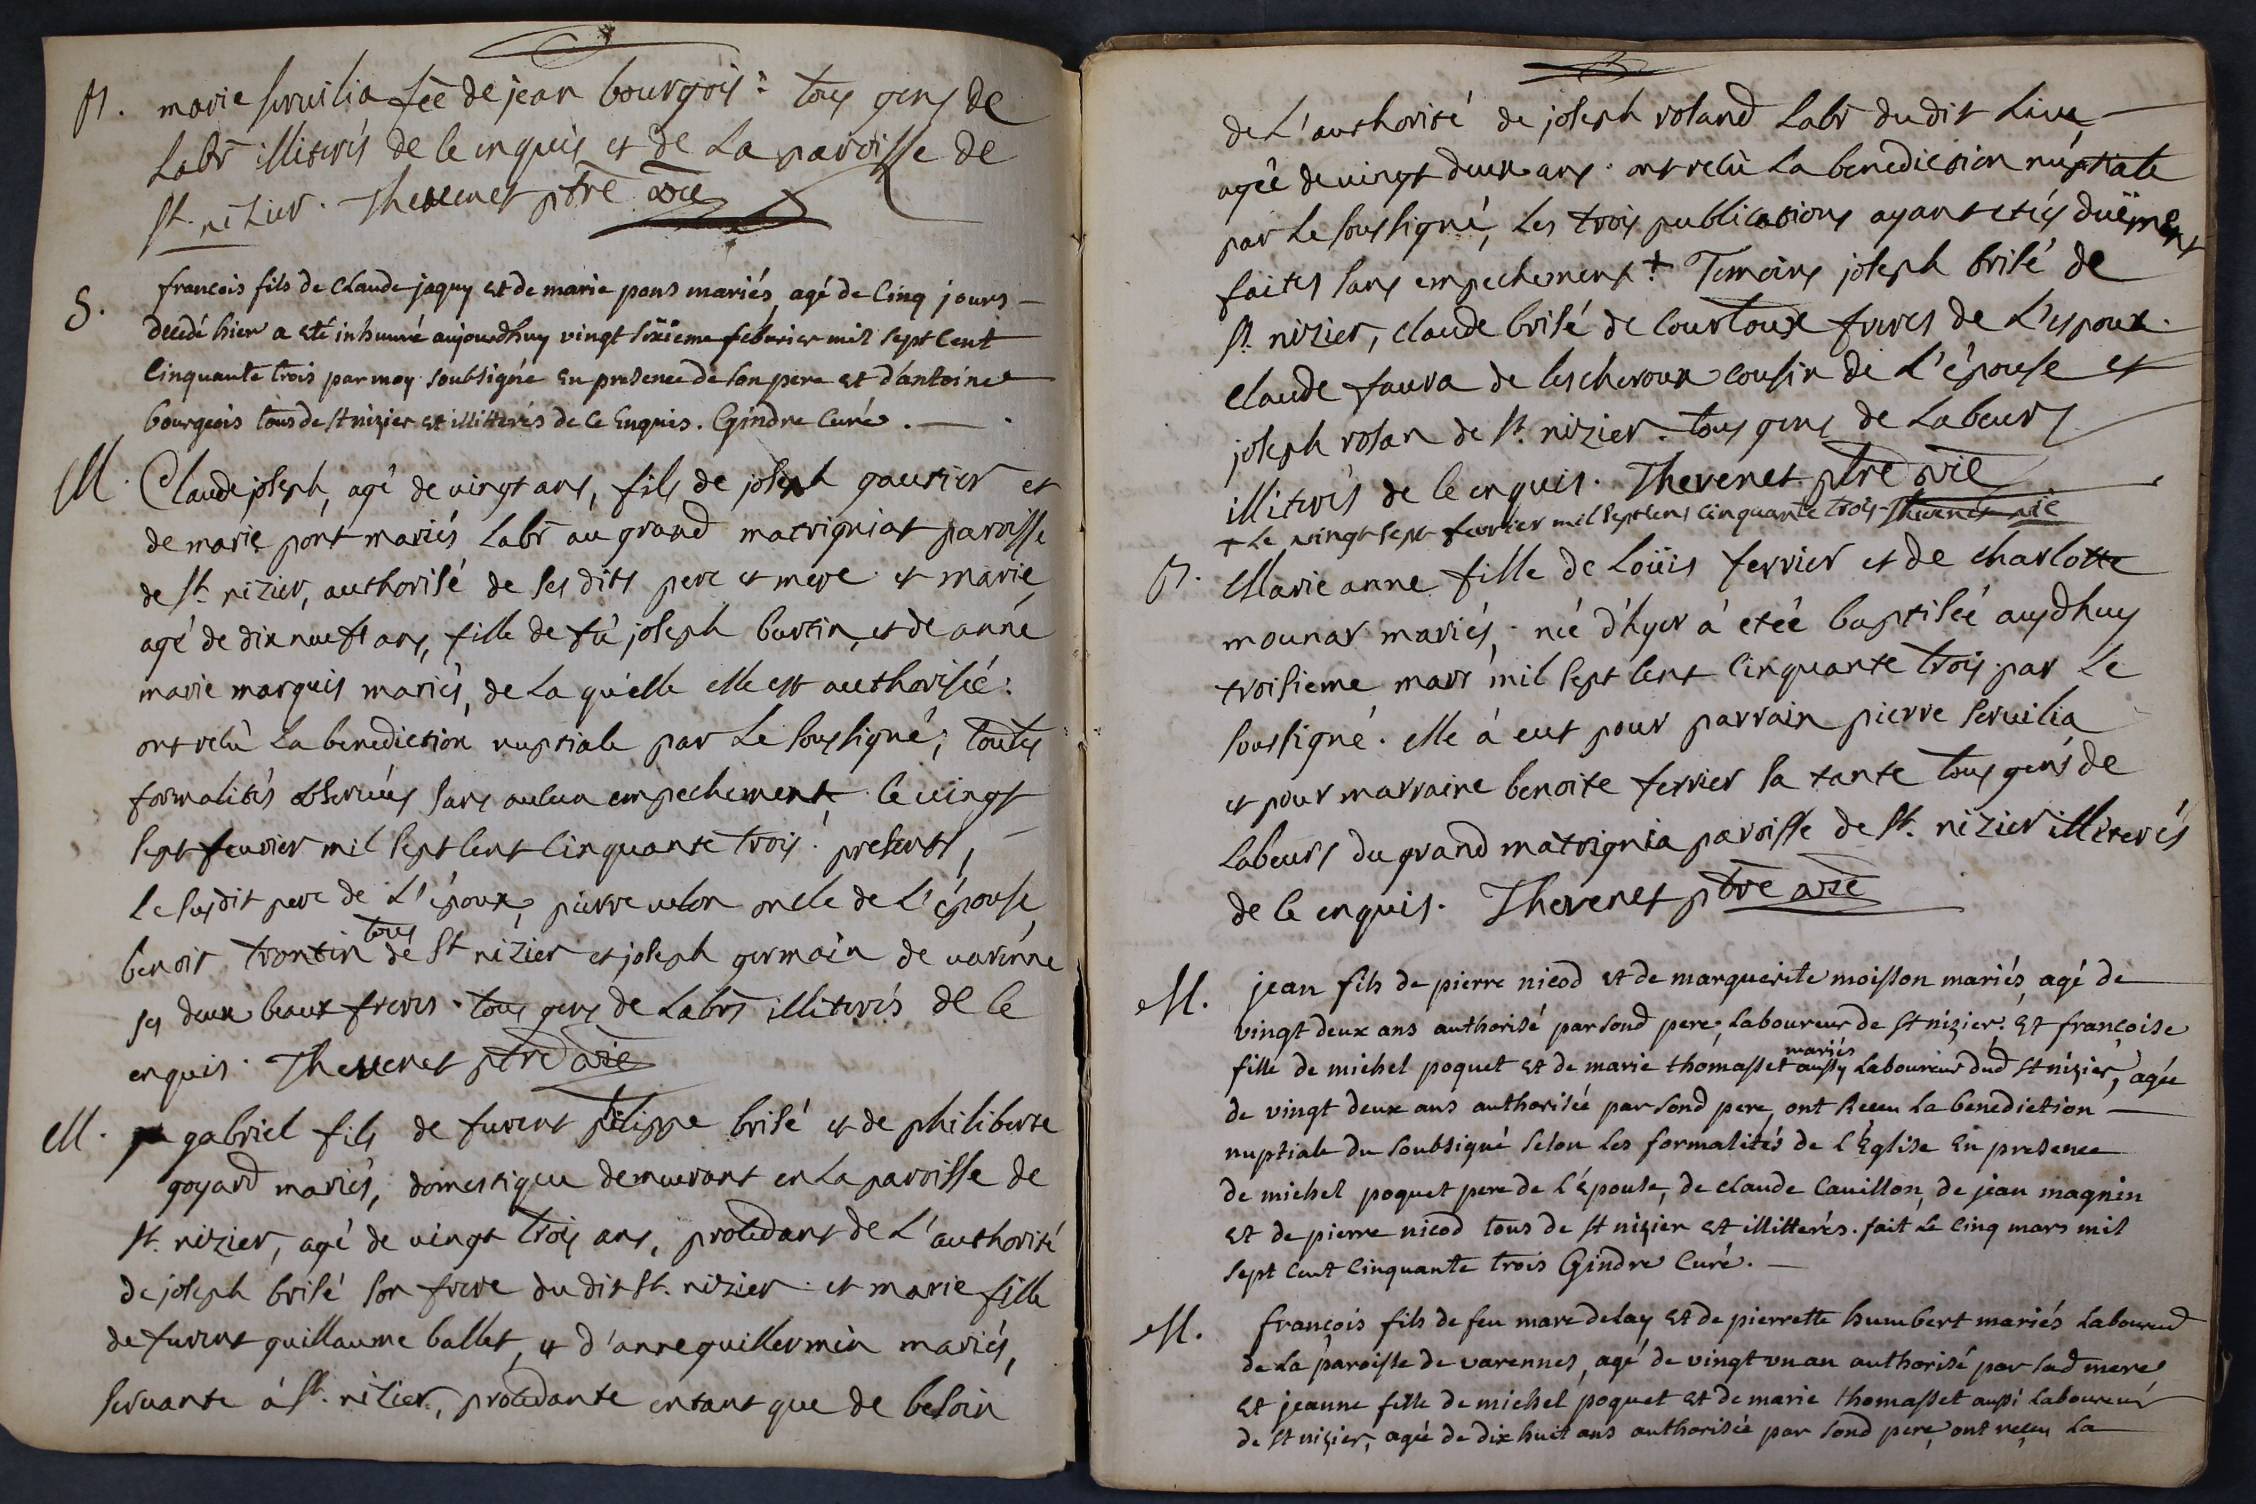 B. marie servilia fée de jean bourgois : tous gens de
Labr illiterés de ce enquis et de La paroisse de
St. nizier. Thevenet ptre vic
S. francois fils de Claude jaquy et de marie pons mariés, agé de Cinq jours
decedé hier a eté inhumé aujourdhuy vingt sixieme febvrier mil sept Cent
Cinquante trois par moy soubsignée En presence de son pere et d'antoine
bourgeois tous de st nizier et illitterés de Ce Enquis. Gindre Curé.
M. Claude joseph, agé de vingt ans, fils de joseph gautier et
de marie pont mariés Labr au grand matrigniat paroisse
de St. nizier, authorisé de ses dits pere et mere et marie
agé de dix neuft ans, fille de fû joseph burtin, et de anne
marie marquis mariés, de La qu'elle elle est authorisée :
ont recû La benediction nuptiale par Le soussigné ; toutes
formalités observées sans aucun empechement, le vingt
sept fevrier mil sept cent cinquante trois : presents,
le susdit pere de L'époux, pierre velon oncle de L'épouse,
benoit trontin tous de St nizier et joseph germain de varenne
ses deux beaux freres. tous gens de Labrs illiterés de ce
enquis. Thevenet ptre vic
M. gabriel fils de furent pilippe brisé et de philiberte
goyard mariés, domestique demeurant en La paroisse de
St. nizier, agé de vingt trois ans, procedant de L'authorité
de joseph brisé son frere du dit St. nizier. et marie fille
de furent guillaume ballet, et d'anne guillermin mariés,
servante à St. nizier, procedante entant que de besoin
de L'authorité de joseph roland Labr dudit Lieu,
agée de vingt deux ans. ont recû La benediction nuptiale
par Le soussigné, Les trois publications ayant etés duëment
faites sans empechement + Temoins joseph brisé de
St. nizier, claude brisé de Courtoux freres de L'epoux.
claude faura de lescheroux cousin de L'épouse et
joseph rolan de St. nizier. tous gens de Labeurs
illiterés de ce enquis. Thevenet ptre vic
+ Le vingt sept fevrier mil sept cent cinquante trois Thevenet vic
B. Marie anne fille de Loüis ferrier et de charlotte
mounar mariés, née d'hyer à etée baptisée aujdhuy
troisieme mars mil sept cent cinquante trois par Le
soussigné. elle à eut pour parrain pierre servilia
et pour marraine benoite ferrier sa tante tous gens de
Labeurs du grand matrignia paroisse de St. nizier illiterés
de ce enquis. Thevenet ptre vic
M. jean fils de pierre nicod et de marguerite moisson mariés, agé de
vingt deux ans authorisé par sond pere, Laboureur de St nizier. Et françoise
fille de michel poquet et de marie thomasset mariés aussy Laboureur dud St nizier, agée
de vingt deux ans authorisée par sond pere, ont Receu La benediction
nuptiale du soubsigné selon Les formalités de L'Église En presence
de michel poquet pere de L'Épouse, de claude Cavillon, de jean magnin
et de pierre nicod tous de St nizier et illitterés. fait Le Cinq mars mil
sept Cent Cinquante trois Gindre Curé.
M. françois fils de feu marc delay et de pierrette humbert mariés Laboureurs
de La paroisse de varennes, agé de vingt un an authorisé par sad mere
Et jeanne fille de michel poquet et de marie thomasset aussi Laboureurs
de St nizier, agée de dix huit ans authorisée par sond pere, ont reçeu La